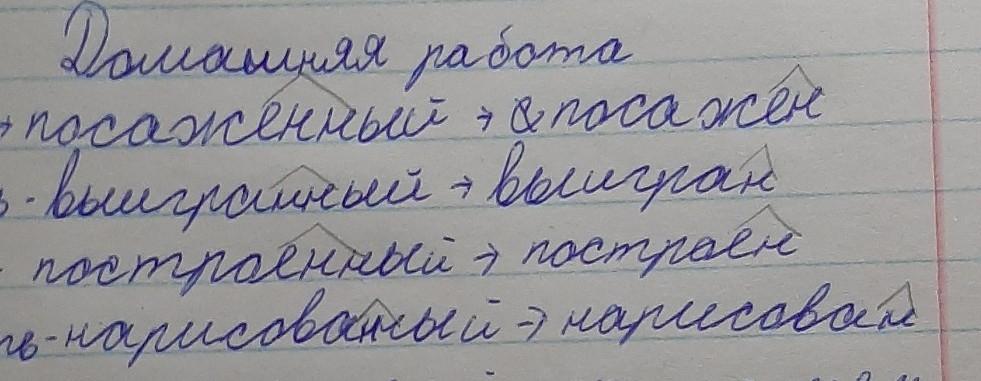 Домашняя работа
→ посаженный → посажен
- выигранный → выигран
построенный → построен
ть - нарисованный → нарисован